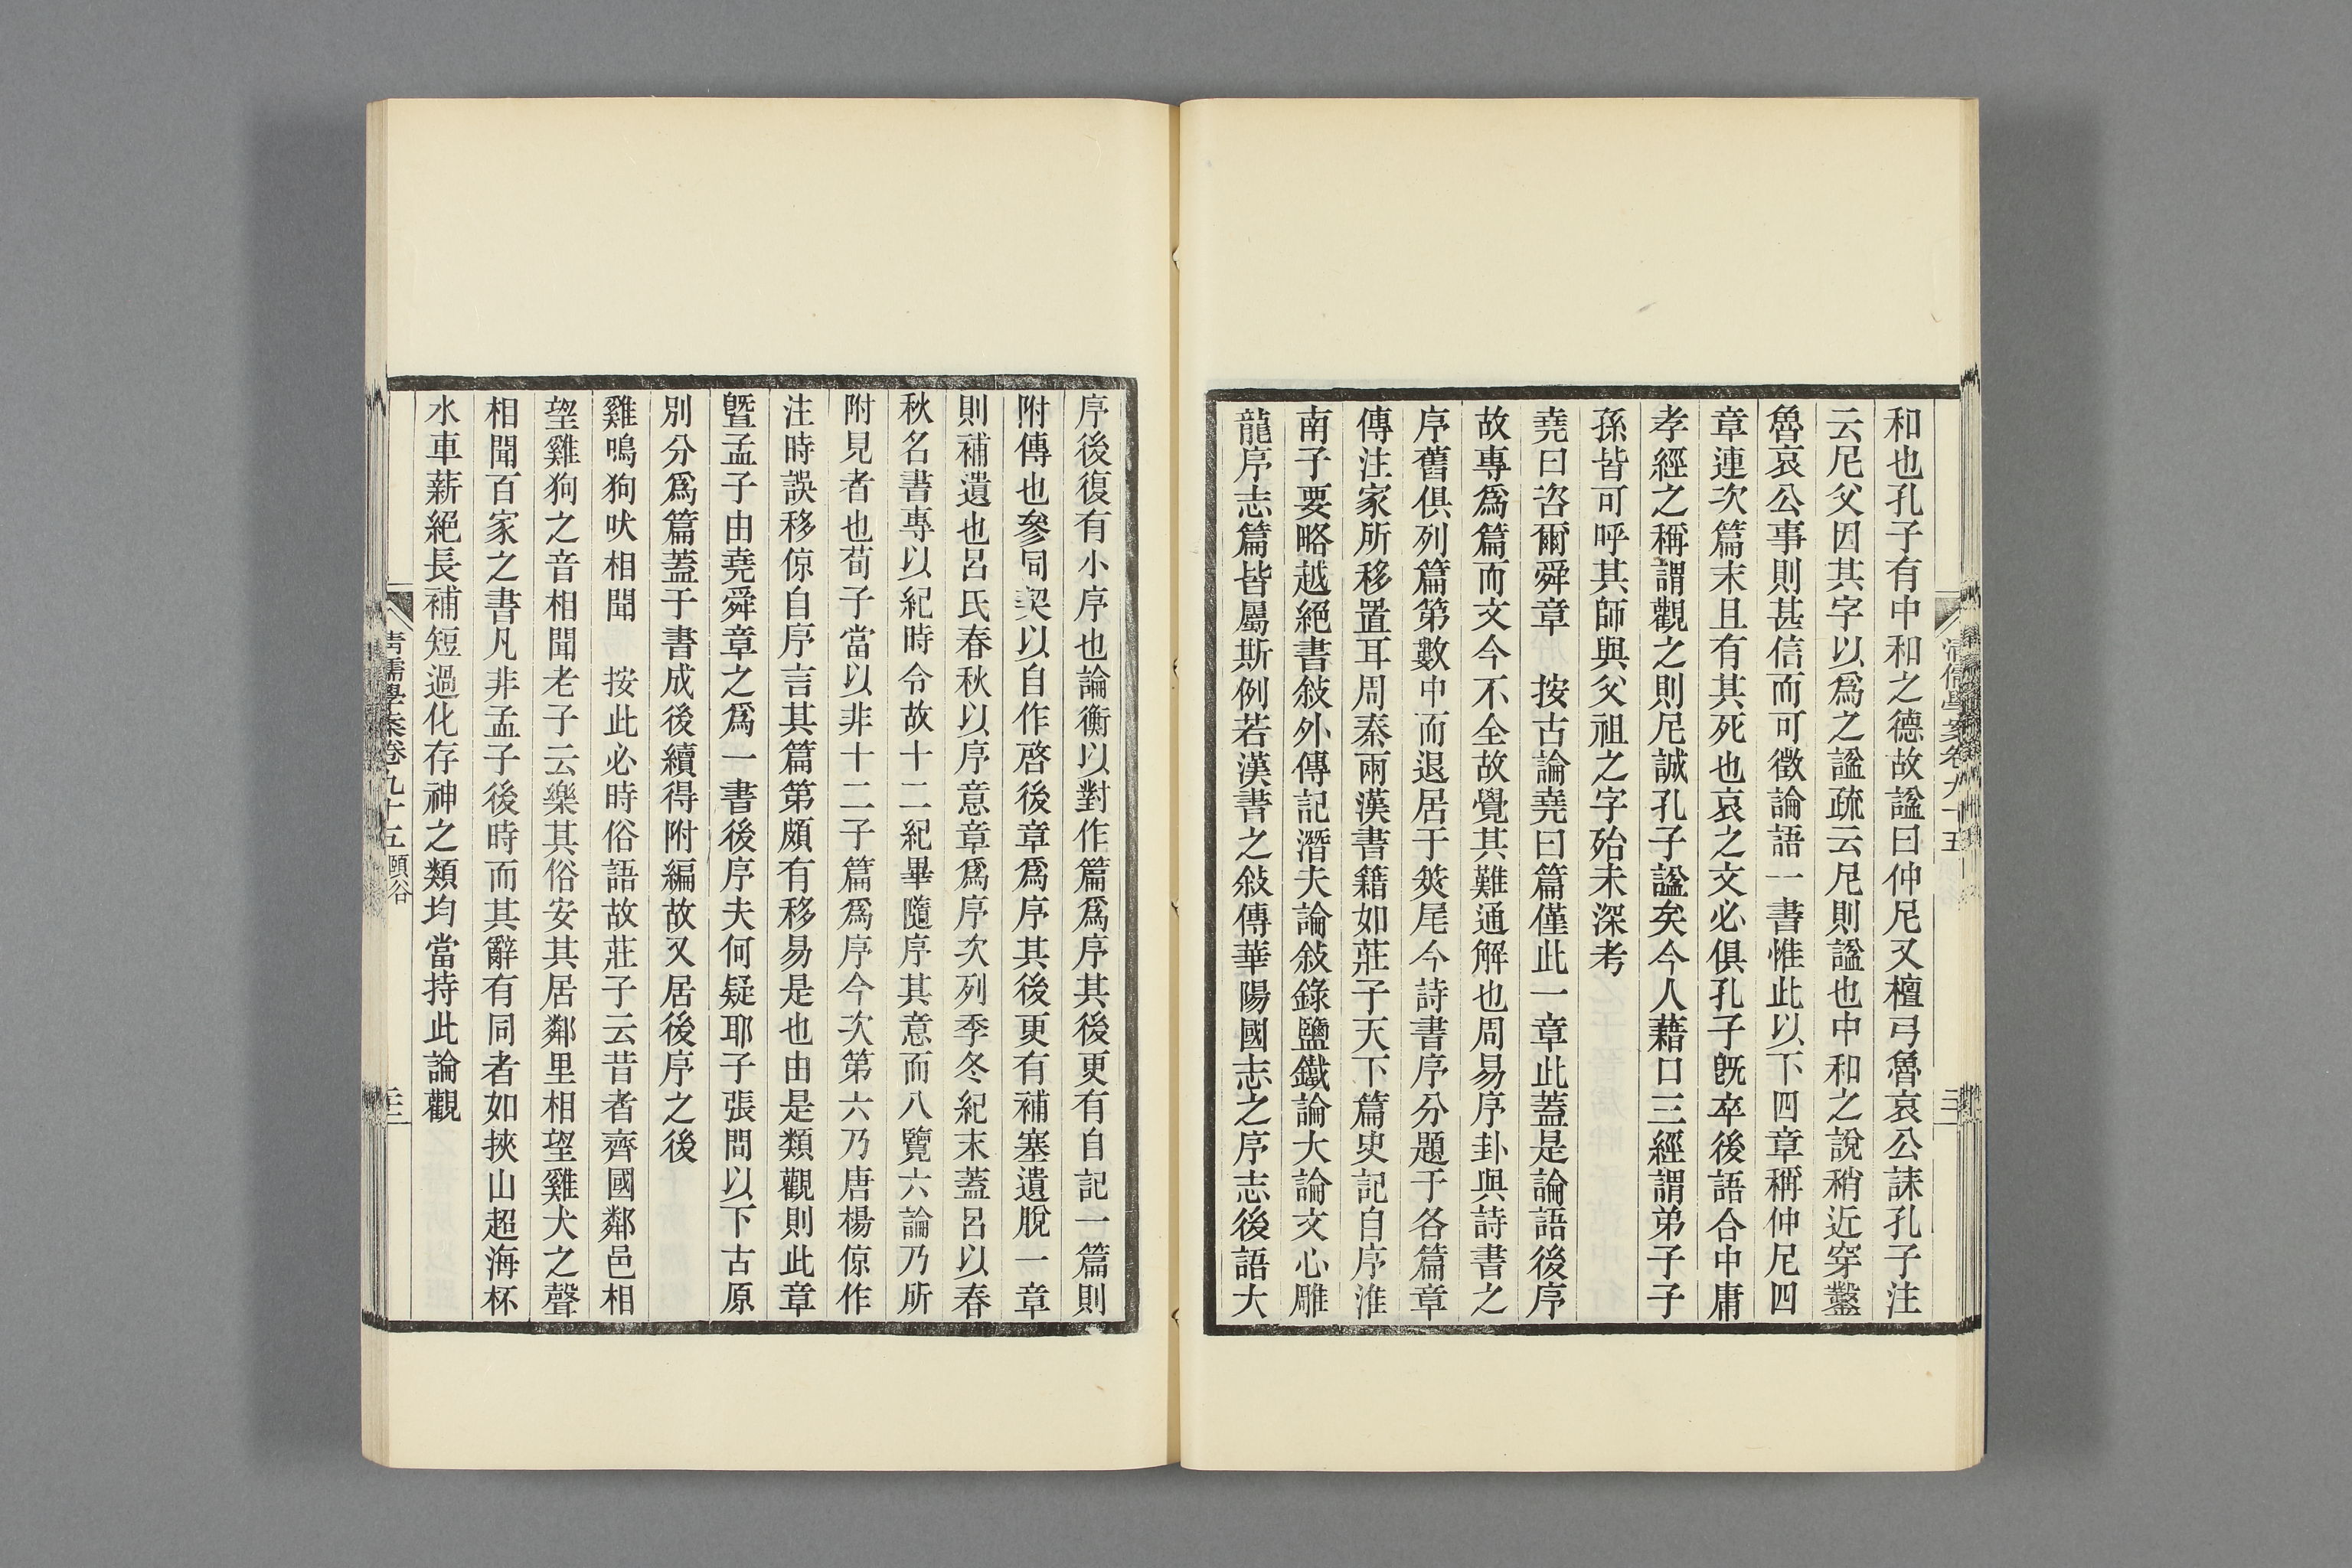 和也孔子有中和之德故諡曰仲尼又檀弓魯哀公誄孔子注
云尼父因其字以爲之諡疏云尼則諡也中和之說稍近穿鑿
魯哀公事則甚信而可徵論語一書惟此以下四章稱仲尼四
章連次篇末且有其死也哀之文必俱孔子旣卒後語合中庸
孝經之稱謂觀之則尼誠孔子諡矣今人藉口三經謂弟子子
孫皆可呼其師與父祖之字殆未深考
堯曰咨爾舜章　按古論堯曰篇僅此一章此蓋是論語後序
故專爲篇而文今不全故覺其難通解也周易序卦與詩書之
序舊俱列篇第數中而退居于筴尾今詩書序分題于各篇章
傳注家所移置耳周秦兩漢書籍如莊子天下篇史記自序淮
南子要略越絕書敍外傳記潛夫論敍錄鹽鐵論大論文心雕
龍序志篇皆屬斯例若漢書之敍傳華陽國志之序志後語大
序後復有小序也論衡以對作篇爲序其後更有自記一篇則
附傳也參同契以自作啓後章爲序其後更有補塞遺脫一章
則補遺也呂氏春秋以序意章爲序次列季冬紀末蓋呂以春
秋名書專以紀時令故十二紀畢隨序其意而八覽六論乃所
附見者也荀子當以非十二子篇爲序今次第六乃唐楊倞作
注時誤移倞自序言其篇第頗有移易是也由是類觀則此章
曁孟子由堯舜章之爲一書後序夫何疑耶子張問以下古原
別分爲篇蓋于書成後續得附編故又居後序之後
雞鳴狗吠相聞　按此必時俗語故莊子云昔者齊國鄰邑相
望雞狗之音相聞老子云樂其俗安其居鄰里相望雞犬之聲
相聞百家之書凡非孟子後時而其辭有同者如挾山超海杯
水車薪絕長補短過化存神之類均當持此論觀
清儒學案卷九十五 頤谷